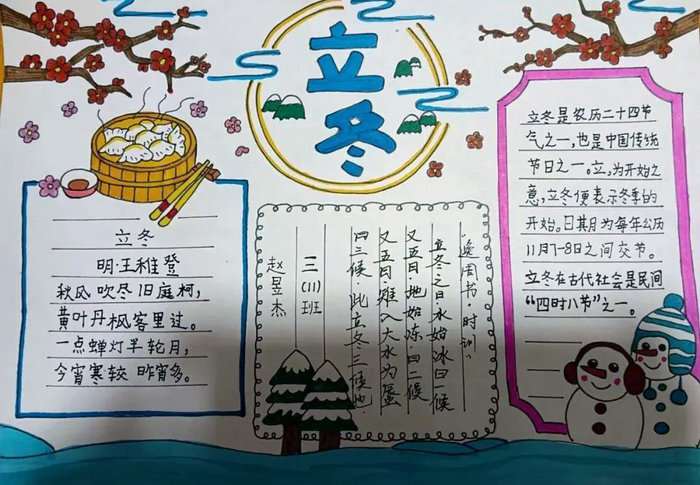 立冬
立冬
明·王稚登
秋风吹尽旧庭柯,
黄叶丹枫客里过。
一点蝉灯半轮月,
今宵寒较昨宵多。
“逸周书·时训”
立冬之日·水始冰曰一候
又五日·地始冻·曰二候
又五日·雉入大水为蜃
曰三候·此立冬三候也·
三(11)班
赵昱杰
立冬是农历二十四节
气之一,也是中国传统
节日之一。立,为开始之
意,立冬便表示冬季的
开始。日其月为每年公历
11月7-8日之间交节。
立冬在古代社会是民间
“四时八节”之一。